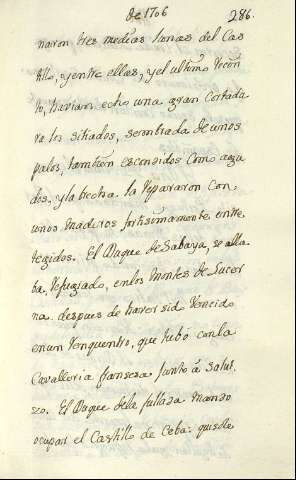 de 1706
286.
naron tres medias lunas del Cas
tillo, y entre ellas, y el ultimo recin
to, havian echo una gran Cortadu
ra los sitiados, sembrada de unos
palos, tambien escondidos como agu
dos, y la brecha la repararon con
unos maderos fortissimamente entre
tegidos. El Duque de Sabaya, se alla
ba, refugiado, en los Montes de Lucer
na. despues de haver sid vencido
en un renquentro, que tubó con la
Cavalleria fransesa junto á Salut
zzo. El Duque de la fullada mandó
ocupar el Castillo de Ceba: quisole